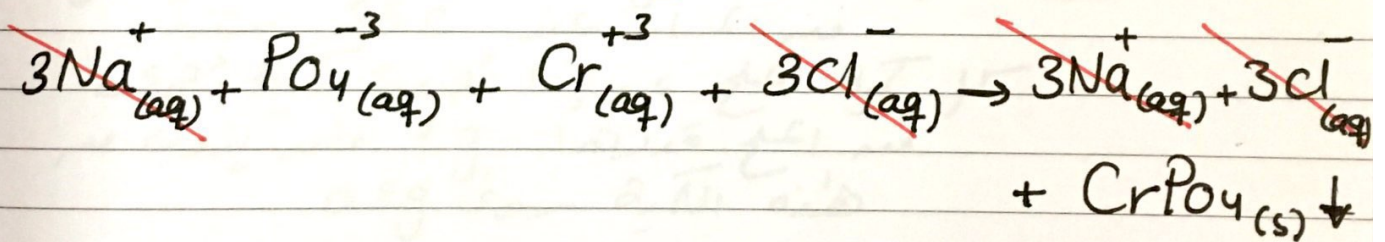 3Na⁺(aq) + PO₄⁻³(aq) + Cr⁺³(aq) + 3Cl⁻(aq) → 3Na⁺(aq) + 3Cl⁻(aq)
+ CrPO₄(s) ↓